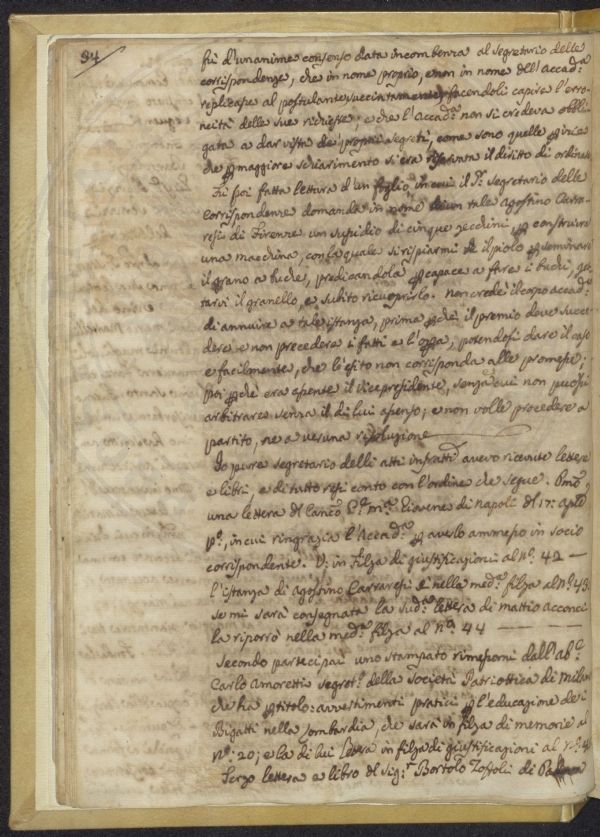 84
fù d'unanime consenso data incombenza al segretario delle
corrispondenze, che in nome proprio, e non in nome dell'Accad.a
replicasse al postulante succintamente, facendoli capire l'erro-
neità delle sue richieste; e che l'Accad.a non si credeva obbli-
gata a dar vista de' proprj segreti, come sono quelle
che maggiore schiarimento si era riservata il diritto di ordinar
Fù poi fatta lettura d'un foglio, in cui il S.r segretario delle
corrispondenze domanda in nome di un tale Agostino Carra-
resi di Firenze un sussidio di cinque zecchini, p construire
una macchina, con la quale si risparmi il piolo p seminare
il grano a buche, predicandola p capace a fare i buchi, get-
tarvi il granello, e subito ricuoprirlo. Non credè il corpo accad.o
di annuire a tale istanza, prima pchè il premio deve succe-
dere e non precedere i fatti e l'opa, potendosi dare il caso
e facilmente, che l'esito non corrisponda alle promesse;
poi pchè era assente il Vicepresidente, senza cui non puossi
arbitrare senza il di lui assenso; e non volle procedere a
partito, ne a veruna risoluzione
Io pure segretario delli atti infratti avevo ricevute lettere
e libri, e di tutto resi conto con l'ordine che segue. Pmo
una lettera del Canco Giavene di Napoli del 17: aple
po, in cui ringrazia l'Accad.a p averlo ammesso in socio
corrispondente. V: in filza di giustificazioni al No. 42 —
l'istanza di Agostino Carraresi è nella med.a filza al No. 43.
se mi sarà consegnata la sud.a lettera di Mattio Acconci
la riporrò nella med.a filza al No. 44 —
Secondo partecipai uno stampato rimessomi dall'ab.e
Carlo Amoretti segret.o della Società Patriottica di Milan
che ha p titolo: avvertimenti pratici p l'educazione de i
Bigatti nella Lombardia, che sarà in filza di memorie al
No: 20; e la di lui lettera in filza di giustificazioni al No. 4
Terzo lettera e libro del Sig.r Bortolo Toffoli di